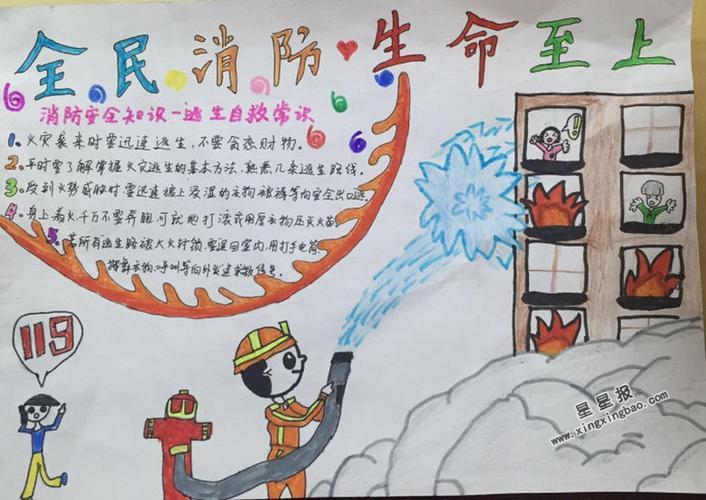 全民消防·生命至上
消防安全知识-逃生自救常识
1、火灾袭来时要迅速逃生,不要贪恋财物。
2、平时要了解掌握火灾逃生的基本方法,熟悉几条逃生路线。
3、受到火势威胁时要迅速披上浸湿的衣物被褥等向安全出口逃
4、身上着火千万不要奔跑可就地打滚或用厚衣物压灭火苗
5、若所有逃生路被大火封锁,要退回室内,用打手电筒,
挥舞衣物,呼叫等向外发送求救信号。
119
星星报
www.xingxingbao.com